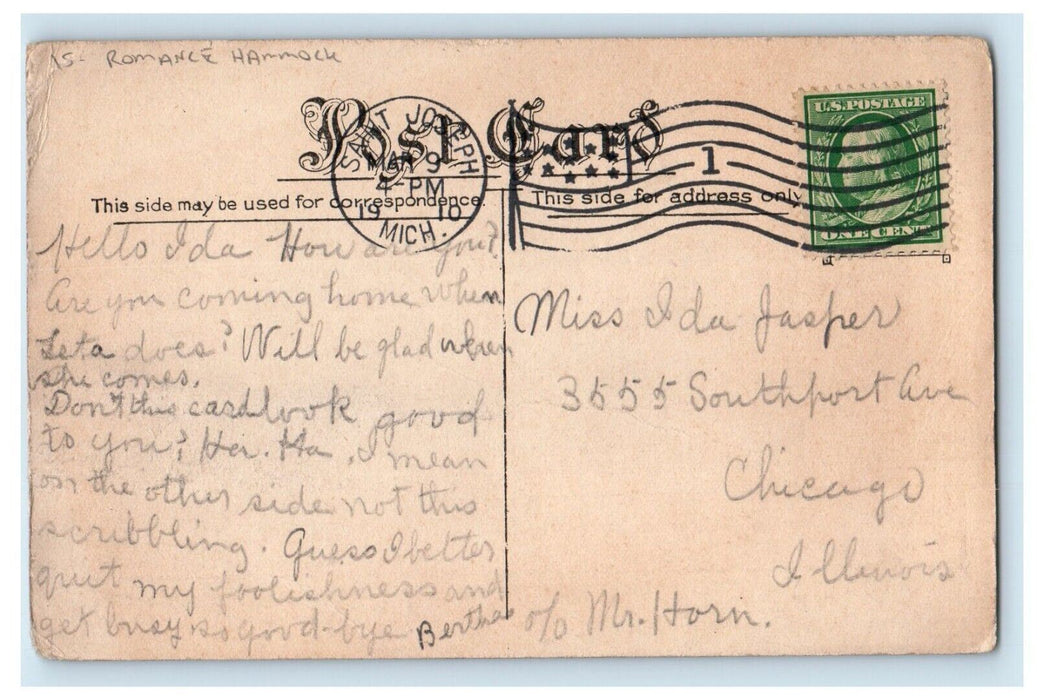 S- ROMANCE HAMMOCK
Post Card
SAINT JOSEPH
MAY 9
4-PM
1910
MICH.
1
U.S. POSTAGE
ONE CENT
This side may be used for correspondence.
This side for address only
Hello Ida How are you?
Are you coming home when
Leta does? Will be glad when
she comes.
Don't this card look good
to you? Ha. Ha. I mean
on the other side not this
scribbling. Guess I better
quit my foolishness and
get busy so good-bye Bertha
Miss Ida Jasper
3555 Southport Ave
Chicago
Illinois
c/o Mr. Horn.